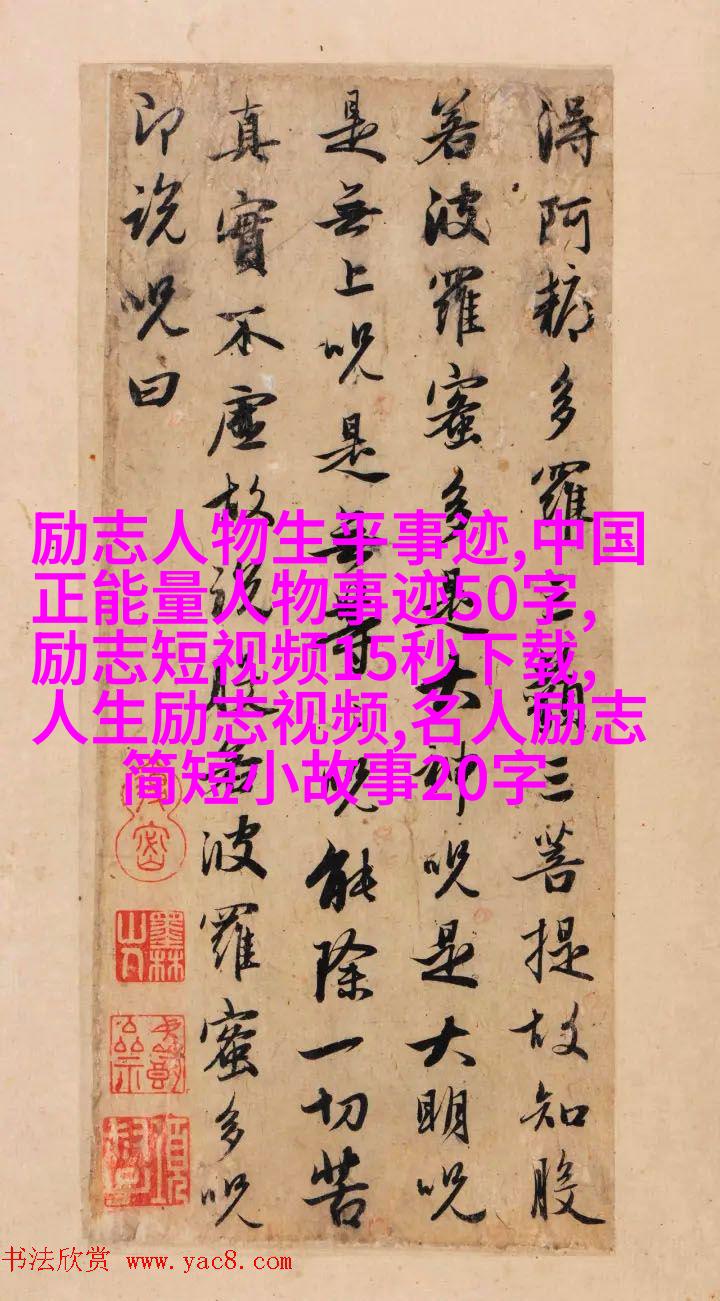 得阿耨多羅三藐三菩提故知般
若波羅蜜多是大神呪是大明呪
是無上呪是無等等呪能除一切苦
真實不虛故說般若波羅蜜多呪
即說呪曰
励志人物生平事迹,中国
正能量人物事迹50字,
励志短视频15秒下载,
人生励志视频,名人励志
简短小故事20字
墨林山人
书法欣赏 www.yac8.com